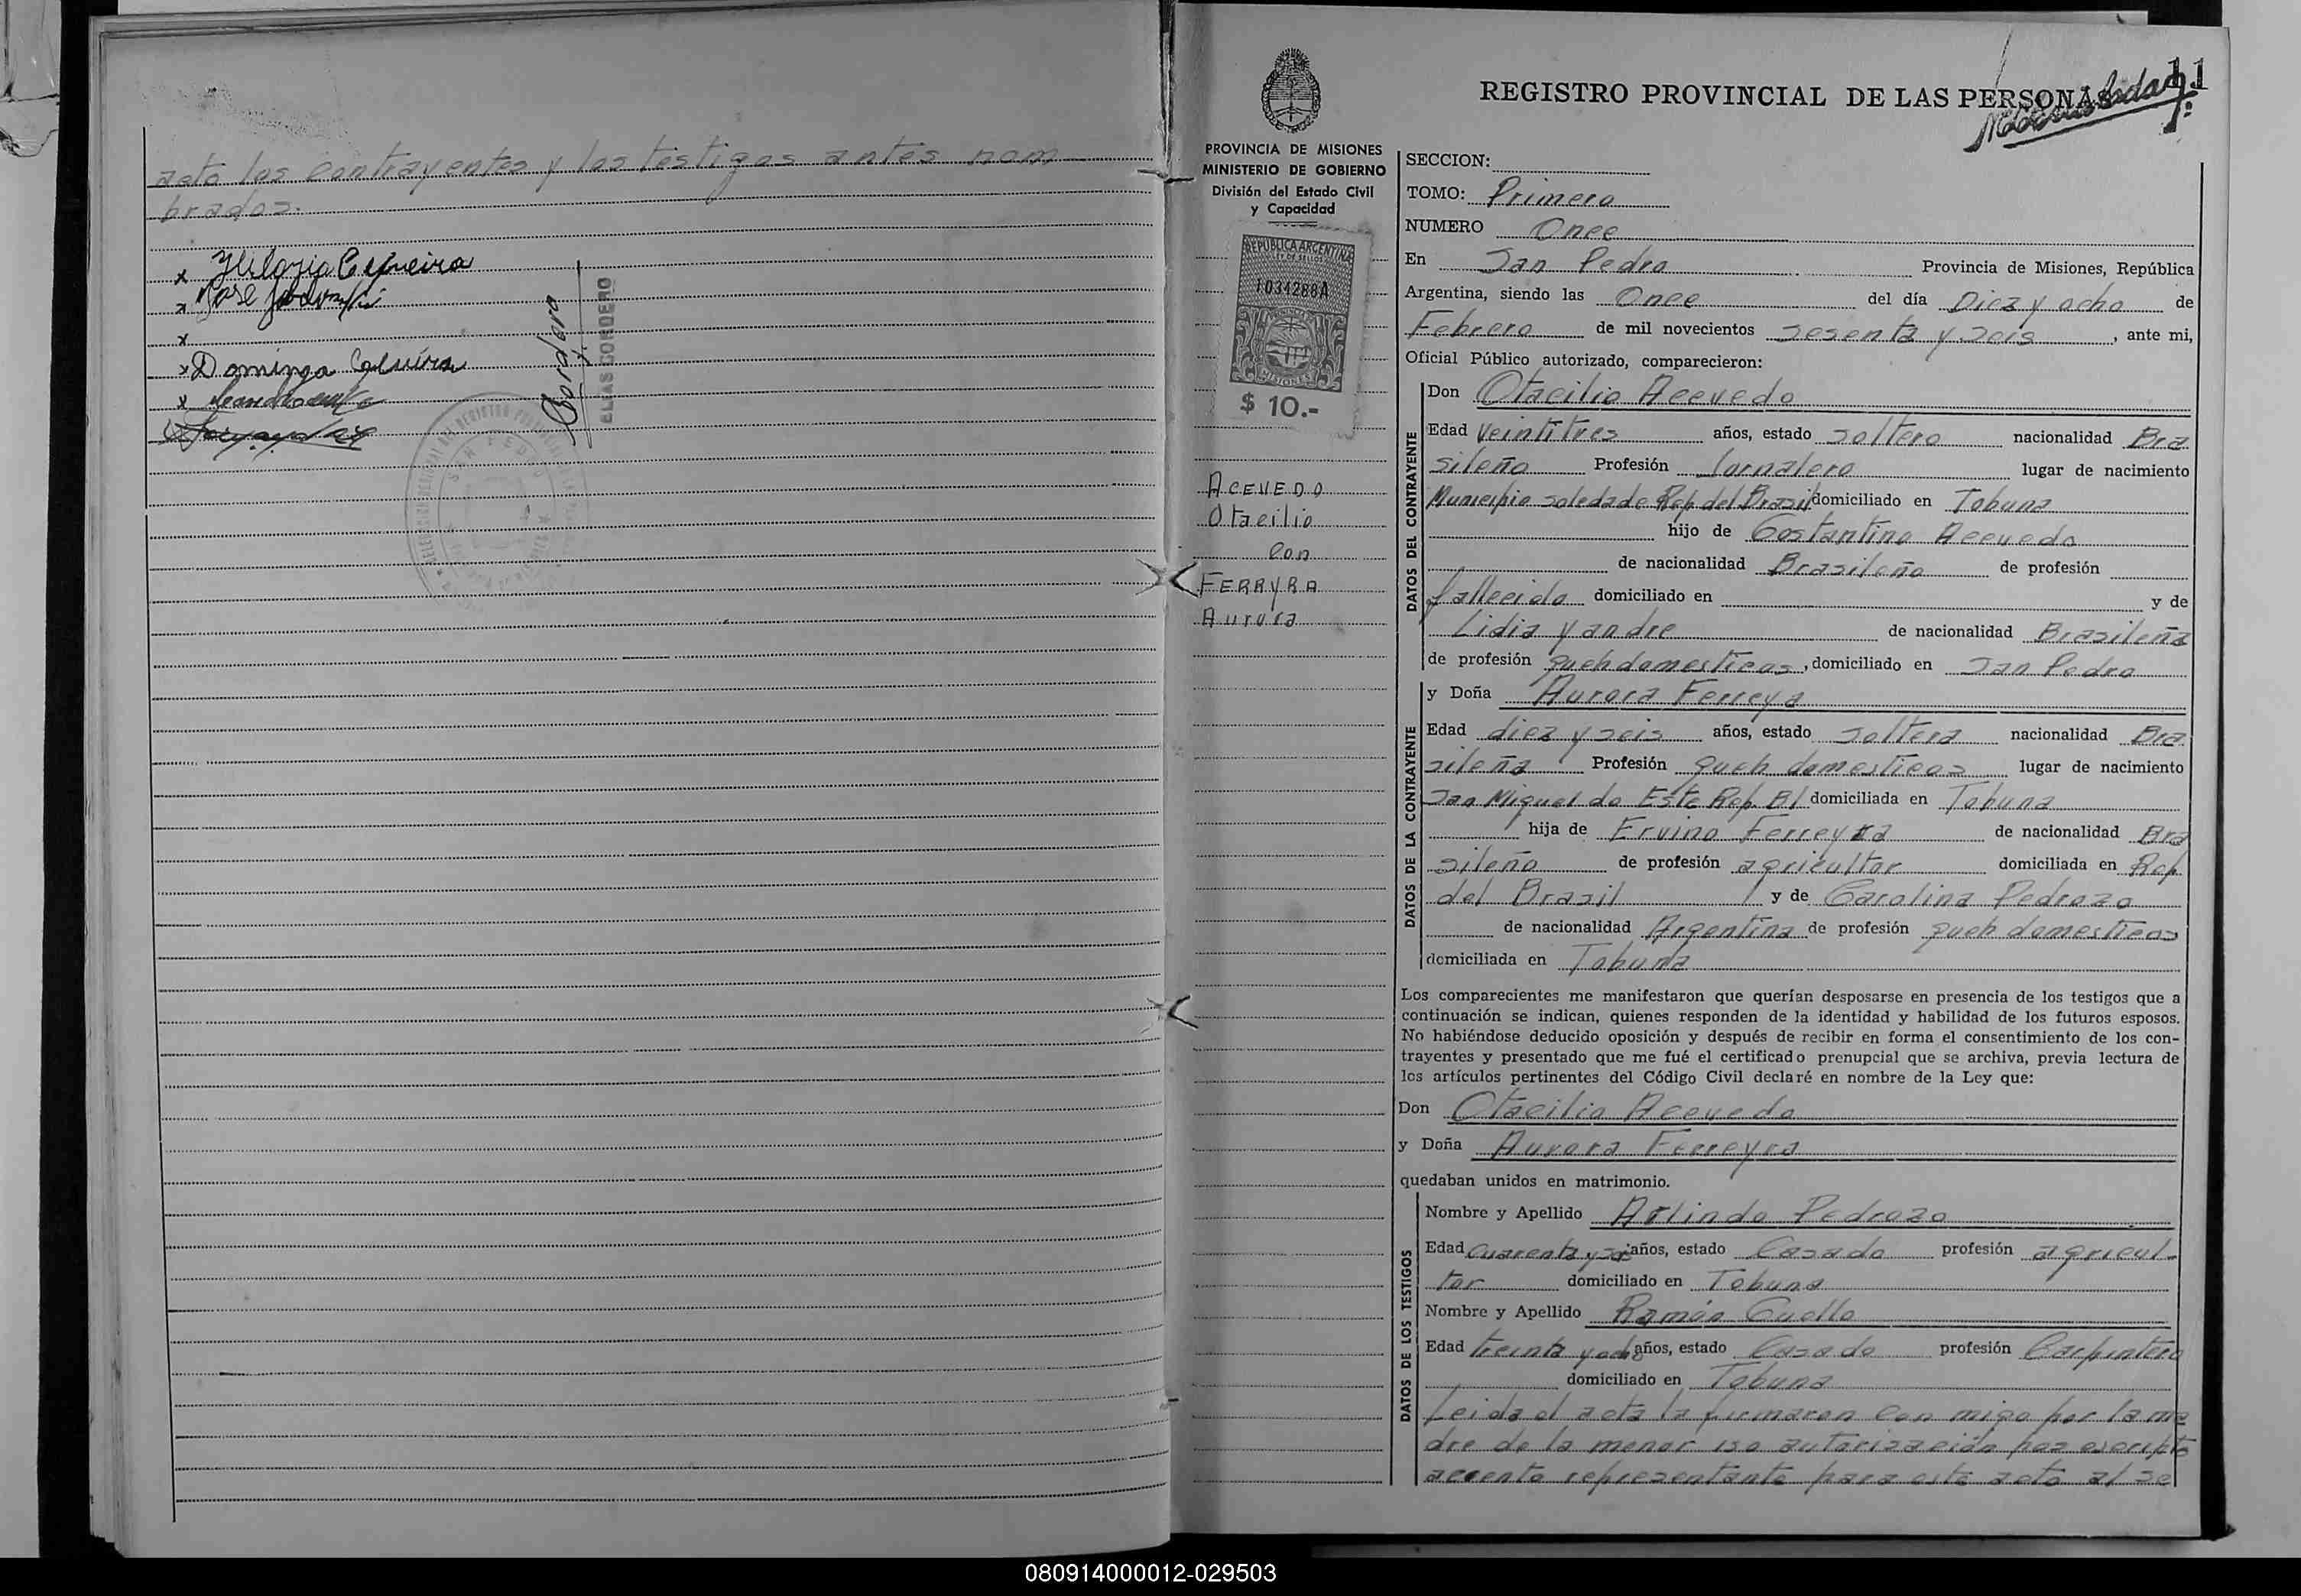 acto los contrayentes y los testigos antes nom
brados.
x Hilario Cequeira
x Jose
x
x Dominga
x
Cordero
ELIAS CORDERO
SAN PEDRO
11
REGISTRO PROVINCIAL DE LAS PERSONAS
PROVINCIA DE MISIONES
MINISTERIO DE GOBIERNO
División del Estado Civil
y Capacidad
REPUBLICA ARGENTINA
LEY DE SELLOS
1034288A
PROVINCIA DE
MISIONES
$ 10.-
ACEVEDO
Otacilio
con
FERRYRA
Aurora
SECCION:
TOMO: Primero
NUMERO Once
En San Pedro Provincia de Misiones, República
Argentina, siendo las Once del día Diez y ocho de
Febrero de mil novecientos sesenta y seis, ante mi,
Oficial Público autorizado, comparecieron:
DATOS DEL CONTRAYENTE
Don Otacilio Acevedo
Edad Veintitres años, estado soltero nacionalidad Bra
sileño Profesión Jornalero lugar de nacimiento
Municipio soledade Rep. del Brasil domiciliado en Tobuna
hijo de Costantino Acevedo
de nacionalidad Brasileño de profesión
fallecido domiciliado en y de
Lidia yandre de nacionalidad Brasileña
de profesión queh domesticos, domiciliado en San Pedro
DATOS DE LA CONTRAYENTE
y Doña Aurora Ferreya
Edad diez y seis años, estado soltera nacionalidad Bra
sileña Profesión queh domesticos lugar de nacimiento
San Miguel do Este Rep. Bl domiciliada en Tobuna
hija de Ervino Ferreyra de nacionalidad Bra
sileño de profesión agricultor domiciliada en Rep.
del Brasil y de Carolina Pedrozo
de nacionalidad Argentina de profesión queh domesticos
domiciliada en Tobuna
Los comparecientes me manifestaron que querían desposarse en presencia de los testigos que a
continuación se indican, quienes responden de la identidad y habilidad de los futuros esposos.
No habiéndose deducido oposición y después de recibir en forma el consentimiento de los con-
trayentes y presentado que me fué el certificado prenupcial que se archiva, previa lectura de
los artículos pertinentes del Código Civil declaré en nombre de la Ley que:
Don Otacilio Acevedo
y Doña Aurora Ferreyra
quedaban unidos en matrimonio.
DATOS DE LOS TESTIGOS
Nombre y Apellido Arlindo Pedrozo
Edad Cuarenta y seis años, estado Casado profesión agricul-
tor domiciliado en Tobuna
Nombre y Apellido Ramón Cuello
Edad treinta y ocho años, estado Casado profesión Carpintero
domiciliado en Tobuna
Leida el acta la firmaron con migo por la ma
dre de la menor autorización por escripto
representante para este acto al se
080914000012-029503